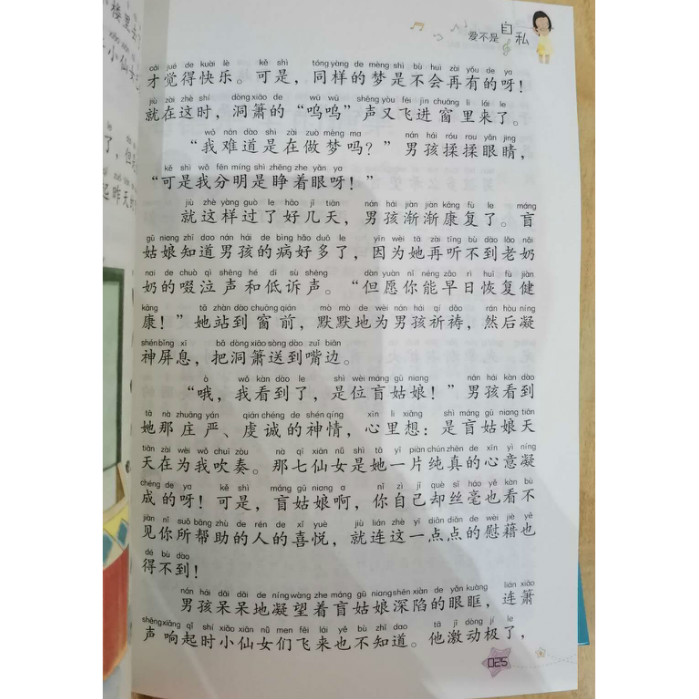 爱不是自私
cái jué de kuài lè kě shì tóng yàng de mèng shì bú huì zài yǒu de ya
才觉得快乐。可是，同样的梦是不会再有的呀！
jiù zài zhè shí dòng xiāo de wū wū shēng yòu fēi jìn chuāng lǐ lái le
就在这时，洞箫的“呜呜”声又飞进窗里来了。
wǒ nán dào shì zài zuò mèng ma nán hái róu rou yǎn jing
“我难道是在做梦吗？”男孩揉揉眼睛，
kě shì wǒ fēn míng shì zhēng zhe yǎn ya
“可是我分明是睁着眼呀！”
jiù zhè yàng guò le hǎo jǐ tiān nán hái jiàn jiàn kāng fù le máng
就这样过了好几天，男孩渐渐康复了。盲
gū niang zhī dao nán hái de bìng hǎo duō le yīn wèi tā zài tīng bù dào lǎo nǎi
姑娘知道男孩的病好多了，因为她再听不到老奶
nai de chuò qì shēng hé dī sù shēng dàn yuàn nǐ néng zǎo rì huī fù jiàn
奶的啜泣声和低诉声。“但愿你能早日恢复健
kāng tā zhàn dào chuāng qián mò mò de wèi nán hái qí dǎo rán hòu níng
康！”她站到窗前，默默地为男孩祈祷，然后凝
shén bǐng xī bǎ dòng xiāo sòng dào zuǐ biān
神屏息，把洞箫送到嘴边。
ò wǒ kàn dào le shì wèi máng gū niang nán hái kàn dào
“哦，我看到了，是位盲姑娘！”男孩看到
tā nà zhuāng yán qián chéng de shén qíng xīn li xiǎng shì máng gū niang tiān
她那庄严、虔诚的神情，心里想：是盲姑娘天
tiān zài wèi wǒ chuī zòu nà qī xiān nǚ shì tā yí piàn chún zhēn de xīn yì níng
天在为我吹奏。那七仙女是她一片纯真的心意凝
chéng de ya kě shì máng gū niang a nǐ zì jǐ què sī háo yě kàn bu
成的呀！可是，盲姑娘啊，你自己却丝毫也看不
jiàn nǐ suǒ bāng zhù de rén de xǐ yuè jiù lián zhè yì diǎn diǎn de wèi jiè yě
见你所帮助的人的喜悦，就连这一点点的慰藉也
dé bù dào
得不到！
nán hái dāi dāi de níng wàng zhe máng gū niang shēn xiàn de yǎn kuàng lián xiāo
男孩呆呆地凝望着盲姑娘深陷的眼眶，连箫
shēng xiǎng qǐ shí xiǎo xiān nǚ men fēi lái yě bù zhī dào tā jī dòng jí le
声响起时小仙女们飞来也不知道。他激动极了，
025